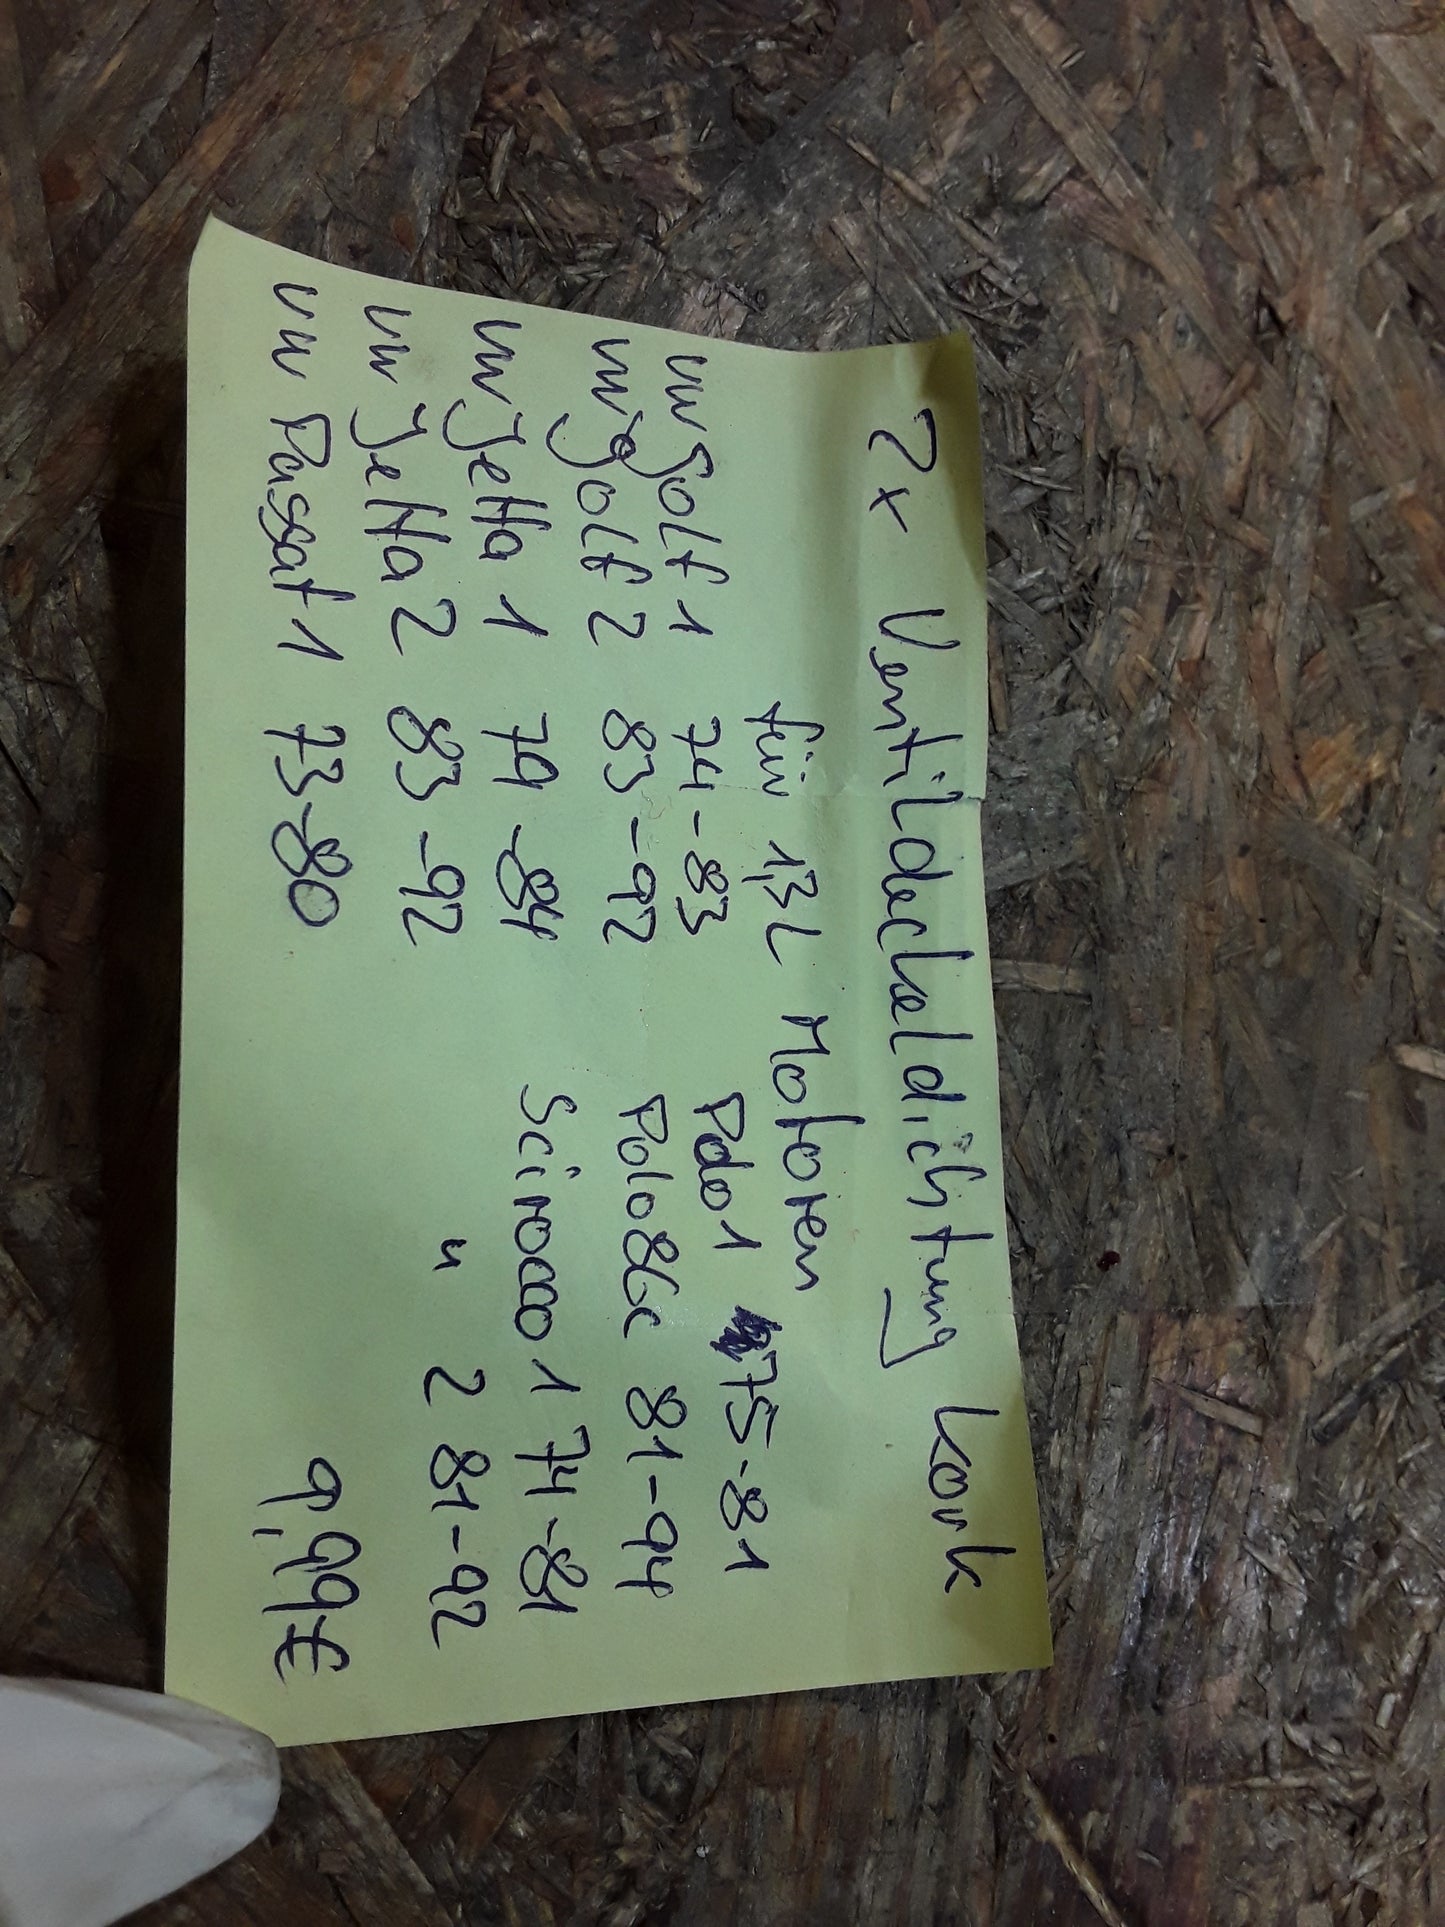 2x Ventildeckeldichtung Kork
für 1,3L Motoren
VW Golf 1 74-83 Polo 1 75-81
VW Golf 2 83-92 Polo 86c 81-94
VW Jetta 1 79-84 Scirocco 1 74-81
VW Jetta 2 83-92 " 2 81-92
VW Passat 1 73-80 9,99€